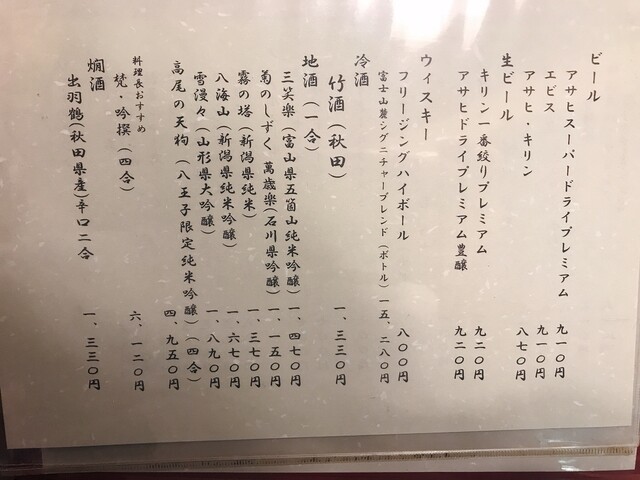 ビール
アサヒスーパードライプレミアム 九一〇円
エビス 九一〇円
アサヒ・キリン 八七〇円
生ビール
キリン一番絞りプレミアム 九二〇円
アサヒドライプレミアム豊醸 九二〇円
ウィスキー
フリージングハイボール 八〇〇円
富士山麓シグニチャーブレンド(ボトル) 一五、二八〇円
冷酒
竹酒(秋田) 一、三三〇円
地酒(一合)
三笑楽(富山県五箇山純米吟醸) 一、四七〇円
菊のしずく 萬歳楽(石川県吟醸) 一、一五〇円
霧の塔(新潟県純米) 一、三七〇円
八海山(新潟県純米吟醸) 一、六七〇円
雪漫々(山形県大吟醸) 一、八九〇円
高尾の天狗(八王子限定純米吟醸)(四合) 四、九五〇円
料理長おすすめ
梵・吟撰(四合) 六、一二〇円
燗酒
出羽鶴(秋田県産)辛口二合 一、三三〇円